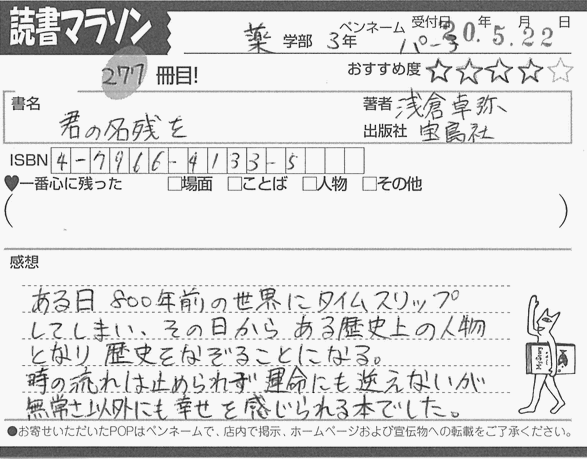 読書マラソン
薬 学部 3年 ペンネーム パーデ 受付日 20年5月22日
277 冊目! おすすめ度 ★★★★☆
書名 君の名残を
著者 浅倉卓弥
出版社 宝島社
ISBN 4-7966-4133-5
♥一番心に残った □場面 □ことば □人物 □その他
( )
感想
ある日 800年前の世界にタイムスリップ
してしまい、その日から ある歴史上の人物
となり 歴史をなぞることになる。
時の流れは止められず 運命にも逆えないが
無常さ以外にも幸せを感じられる本でした。
●お寄せいただいたPOPはペンネームで、店内で掲示、ホームページおよび宣伝物への転載をご了承ください。